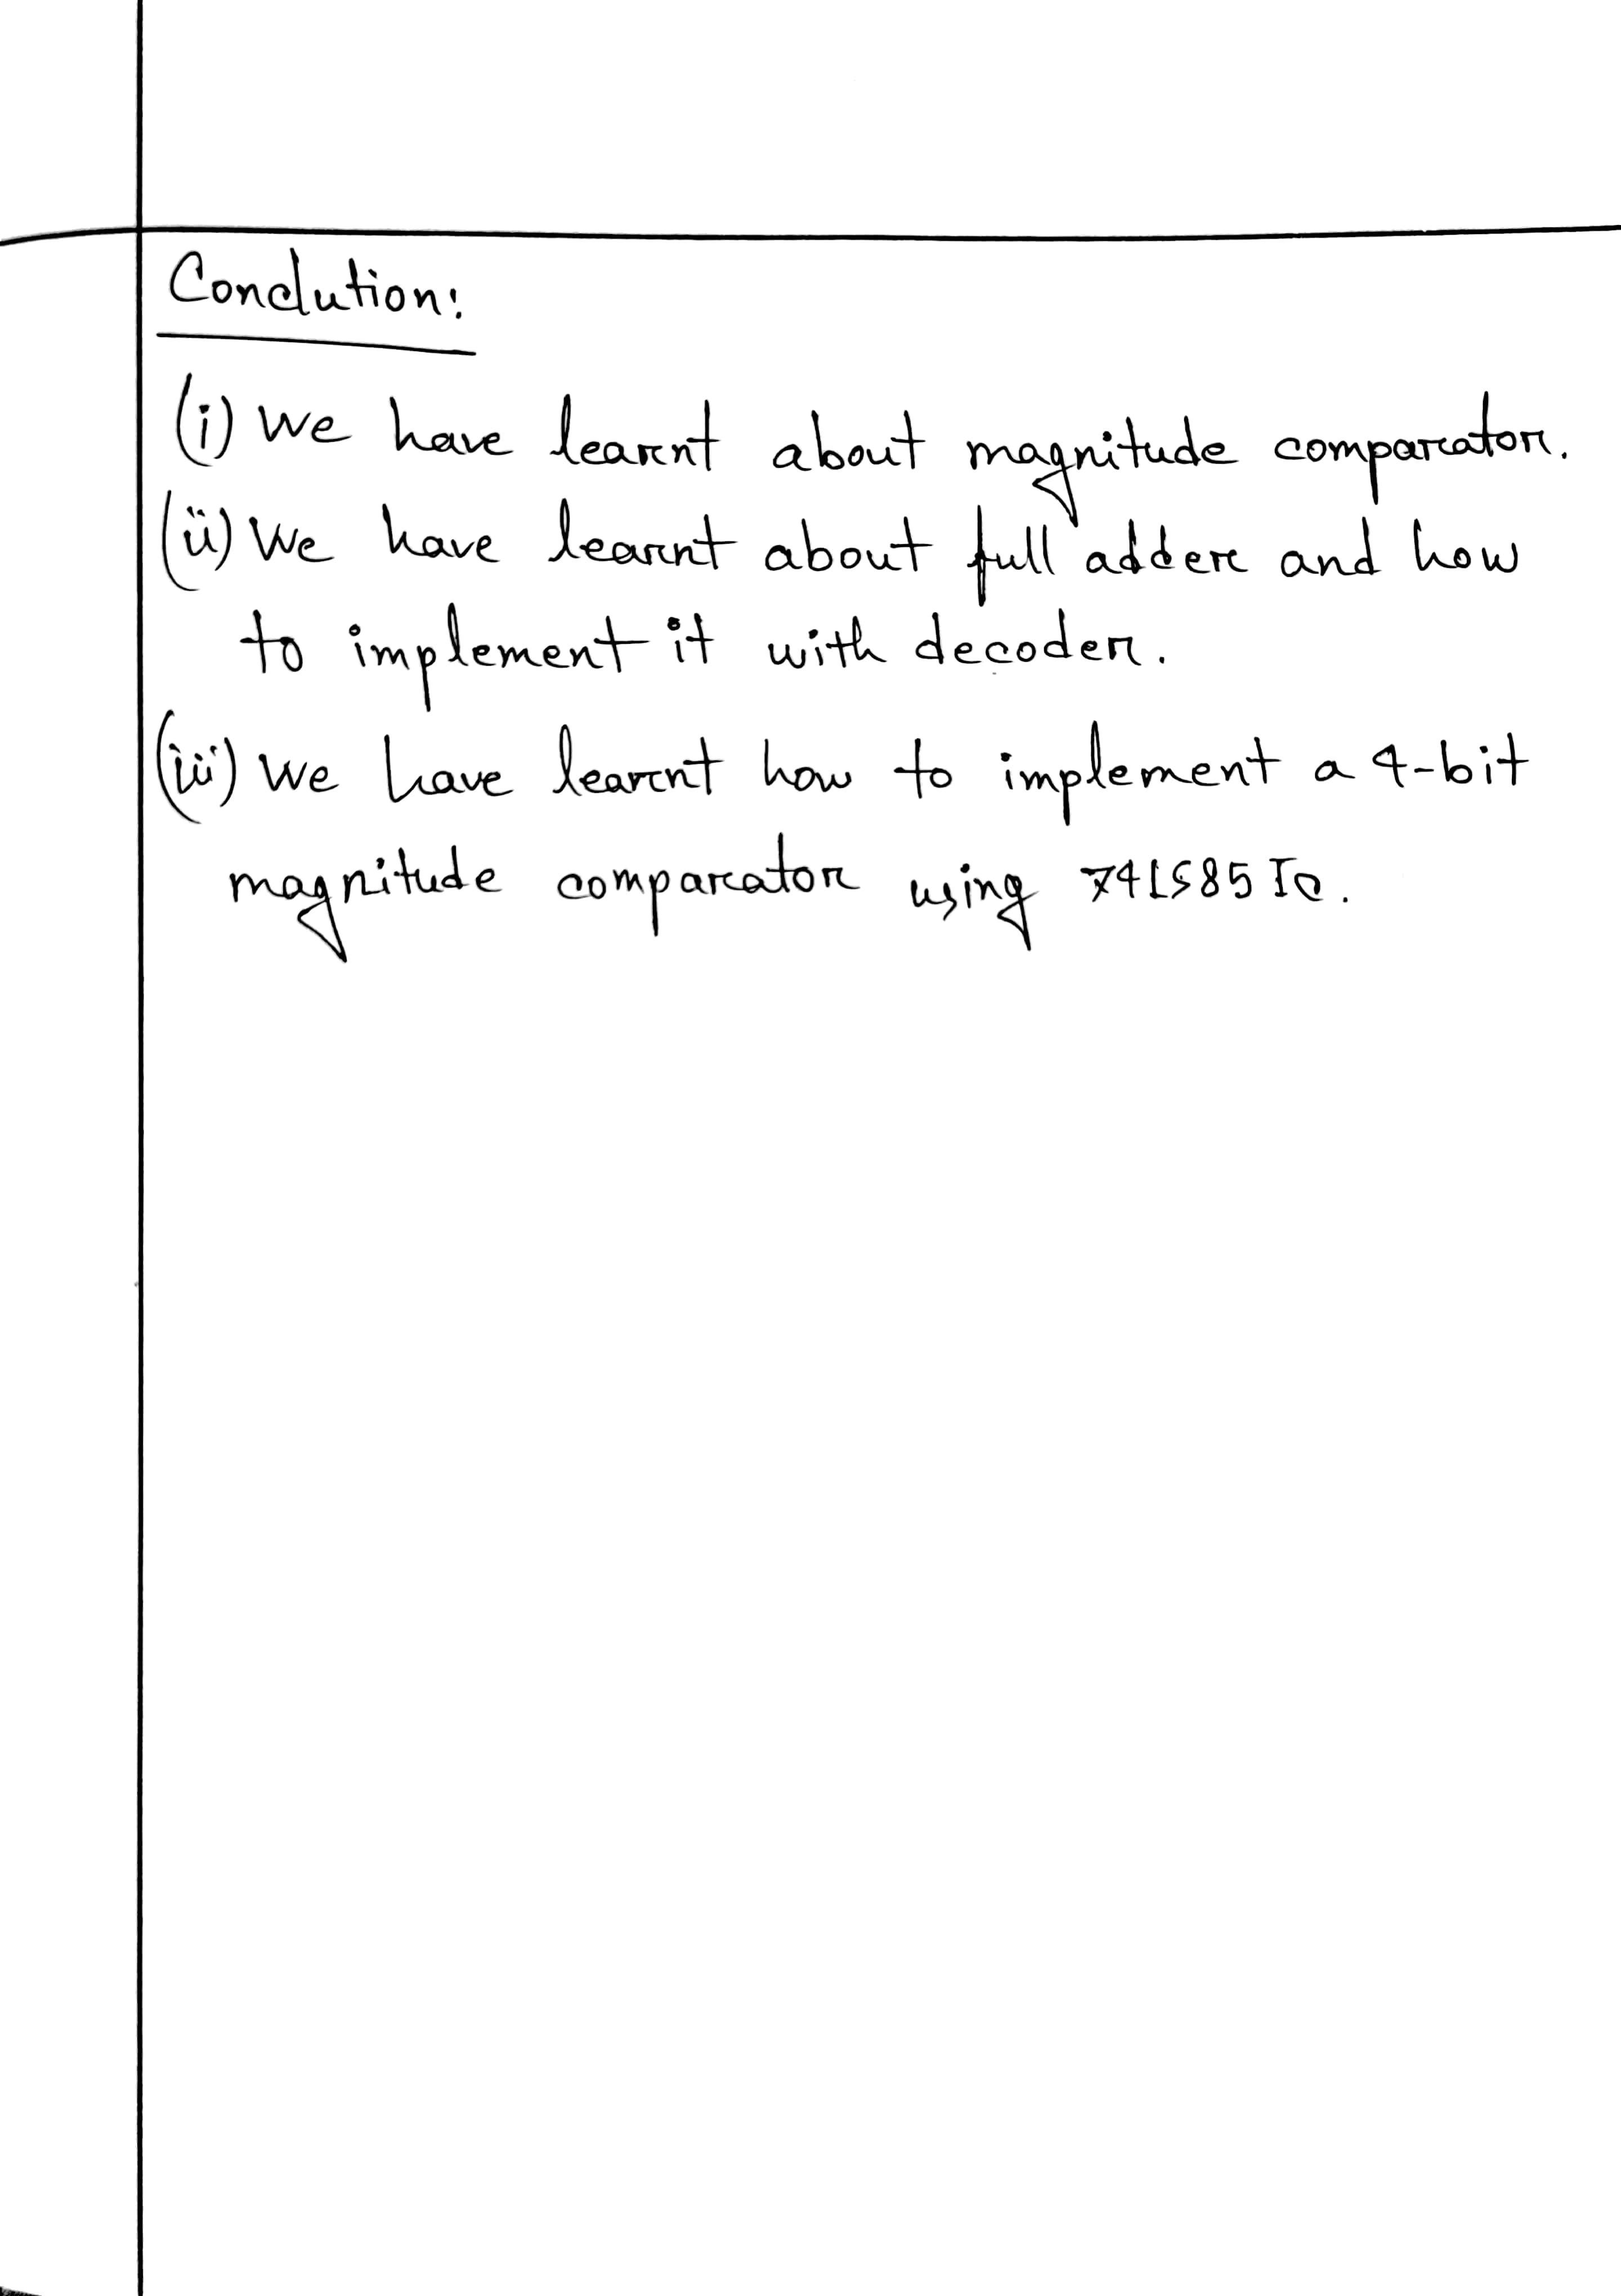 Conclution:
(i) We have learnt about magnitude comparator.
(ii) We have learnt about full adder and how
to implement it with decoder.
(iii) We have learnt how to implement a 4-bit
magnitude comparator using 74LS85 IC.